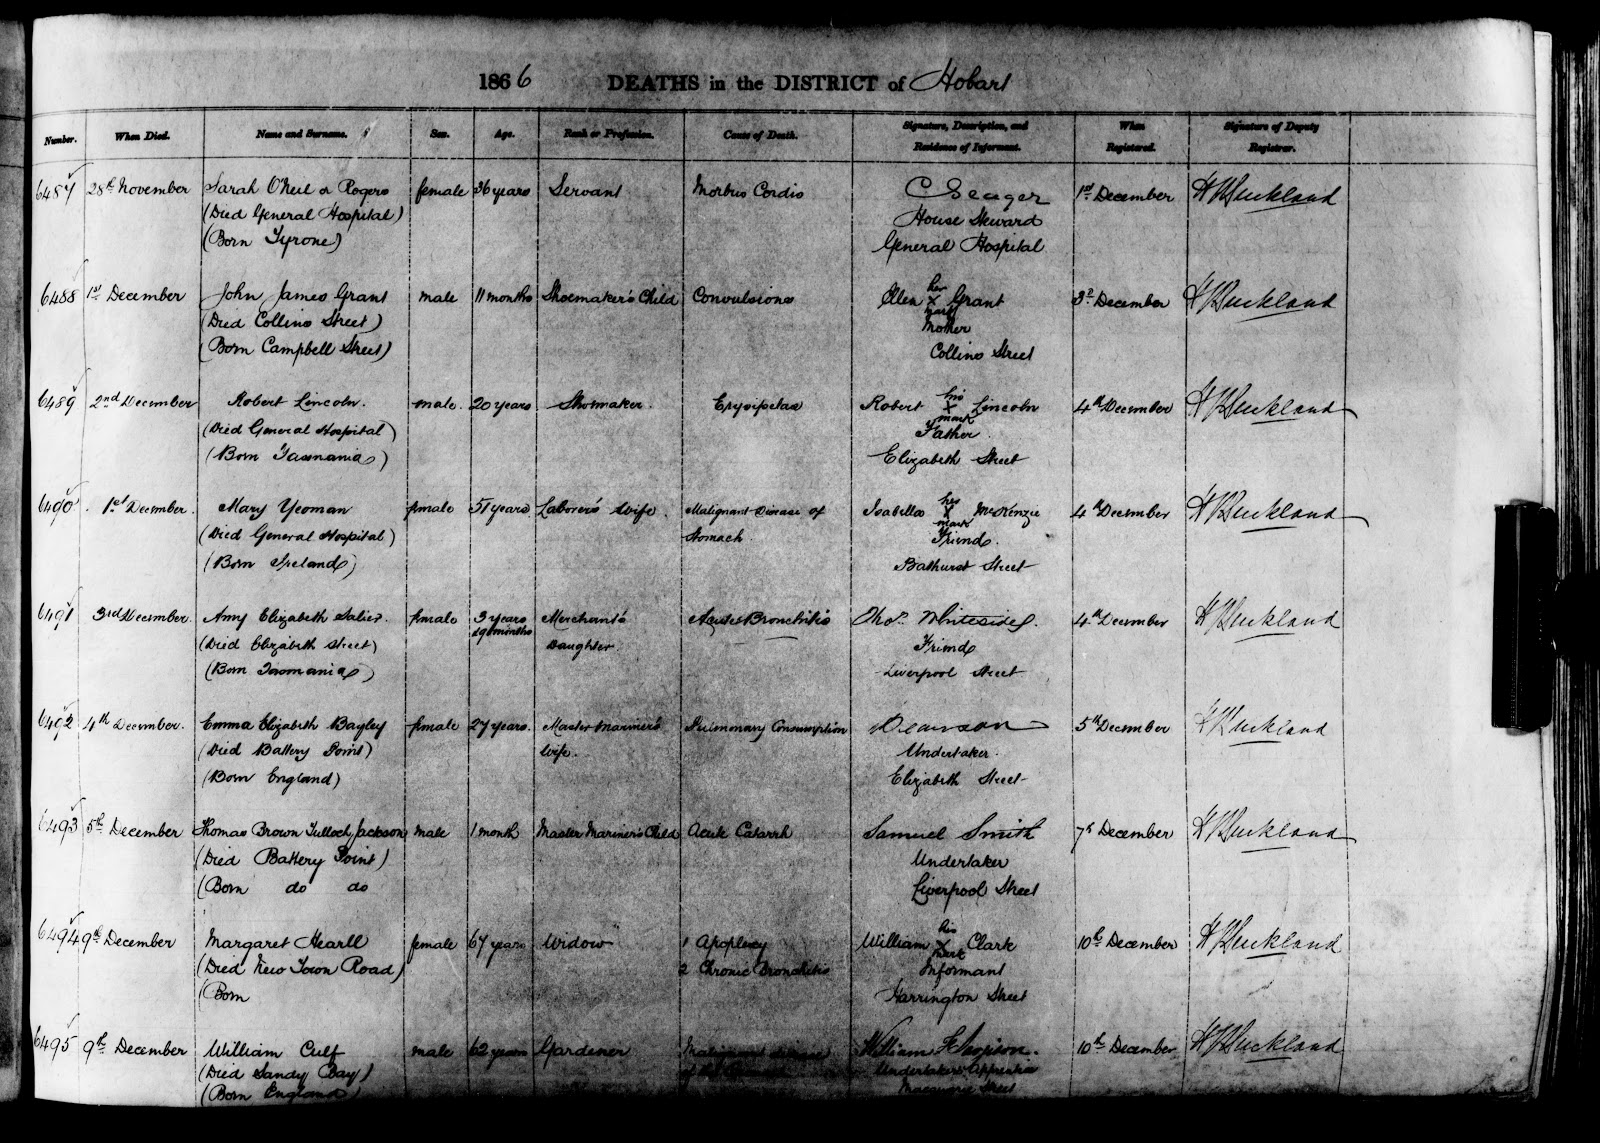 1866 DEATHS in the DISTRICT of Hobart
Number. When Died. Name and Surname. Sex. Age. Rank or Profession. Cause of Death. Signature, Description, and Residence of Informant. When Registered. Signature of Deputy Registrar.
6487 28th November Sarah O'Neil or Rogers female 36 years Servant Morbus Cordis C Seager 1st December
(Died General Hospital) House Steward
(Born Tyrone) General Hospital
6488 1st December John James Grant male 11 months Shoemaker's Child Convulsions Ellen her X mark Grant 3d December
(Died Collins Street) Mother
(Born Campbell Street) Collins Street
6489 2nd December Robert Lincoln. male. 20 years Shoemaker. Erysipelas Robert his X mark Lincoln 4th December
(Died General Hospital) Father.
(Born Tasmania) Elizabeth Street
6490 1st December. Mary Yeoman female 51 years Laborer's Wife. Malignant Disease of Isabella her X mark McKenzie 4th December
(Died General Hospital) Stomach. Friend.
(Born Ireland) Bathurst Street
6491 3rd December. Amy Elizabeth Salier. female 3 years Merchant's Acute Bronchitis Thos. Whitesides. 4th December
(Died Elizabeth Street) Daughter. Friend
(Born Tasmania) Liverpool Street
6492 4th December. Emma Elizabeth Bayley female 27 years. Master Mariner's Pulmonary Consumption 5th December
(Died Battery Point) Wife. Undertaker.
(Born England) Elizabeth Street
6493 5th December Thomas Brown Tulloch Jackson male 1 month Master Mariner's Child Acute Catarrh Samuel Smith 7th December
(Died Battery Point) Undertaker
(Born do do Liverpool Street
6494 9th December Margaret Hearll female 67 years Widow 1 Apoplexy William his X mark Clark 10th December
(Died New Town Road) 2 Chronic Bronchitis Informant
(Born Harrington Street
6495 9th December William Cuff male 62 years Gardener Malignant disease William 10th December
(Died Sandy Bay) of the Undertaker's Apprentice
(Born England) Macquarie Street